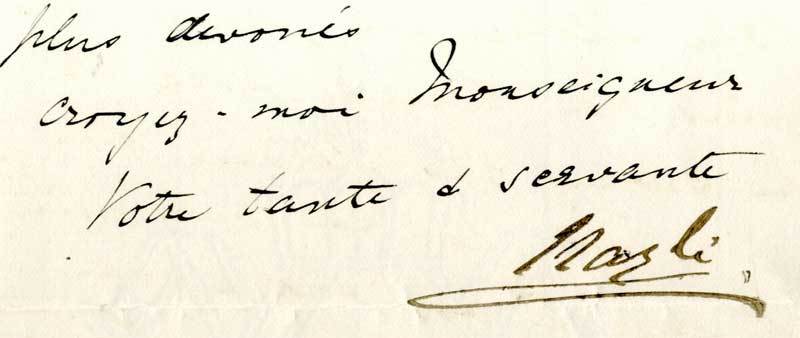 plus devoués
croyez-moi Monseigneur
Votre tante & servante
Nazli